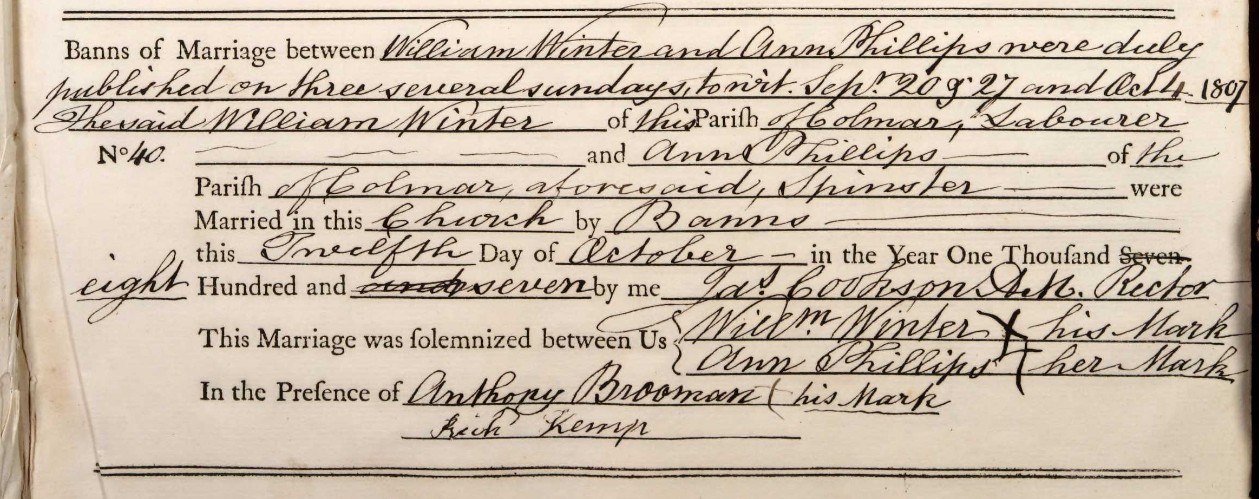 Banns of Marriage between William Winter and Ann Phillips were duly
published on three several sundays, to wit. Sepr. 20 & 27 and Oct 4 1807
The said William Winter of this Pariſh of Colmar, Labourer
No 40. and Ann Phillips of the
Pariſh of Colmar, aforesaid, Spinster were
Married in this Church by Banns
this Twelfth Day of October in the Year One Thouſand Seven
eight Hundred and and seven by me Jas. Cookson A.M. Rector
This Marriage was ſolemnized between Us { Willm Winter X his Mark
Ann Phillips + her Mark
In the Preſence of Anthony Brooman ( his Mark
Richd Kemp